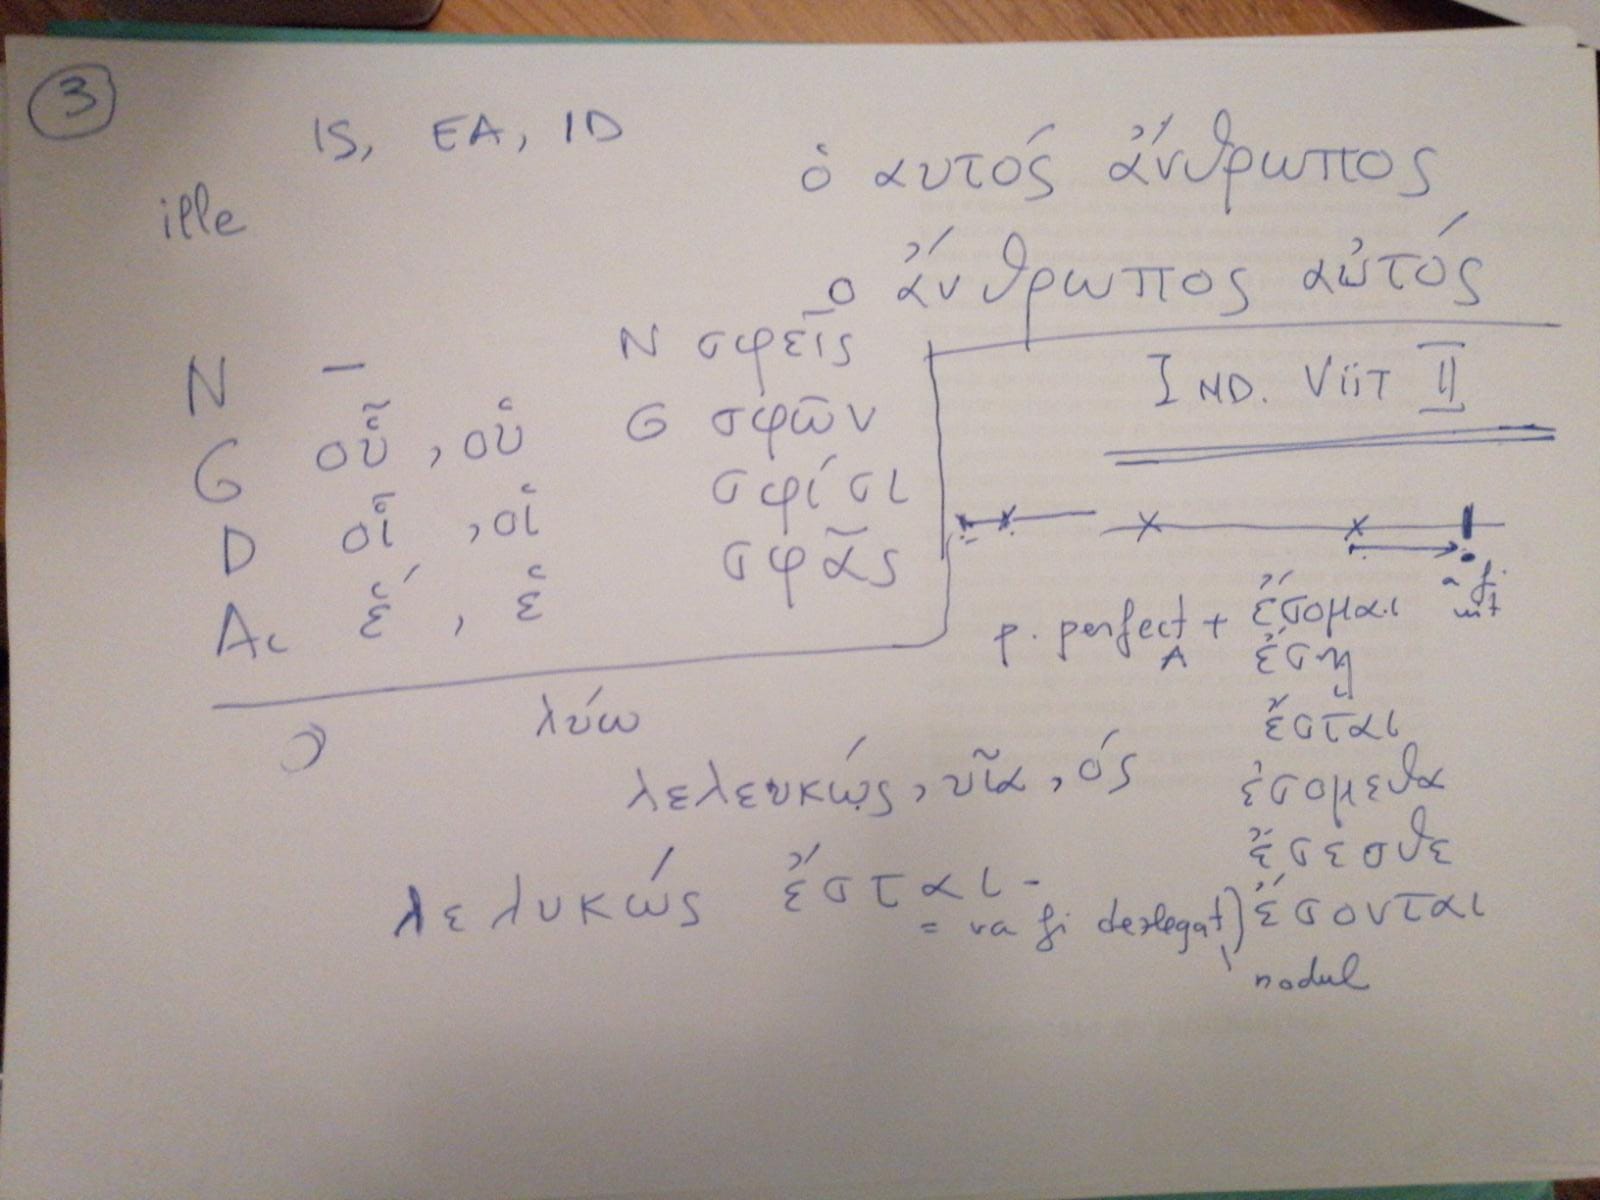 3
IS, EA, ID
ille
ὁ αυτός ἄνθρωπος
ο ἄνθρωπος αὐτός
N —
G οὗ, οὑ
D οἷ, οἱ
Ac ἕ, ἑ
N σφεῖς
G σφῶν
σφίσι
σφᾶς
IND. Viit II
a fi
p. perfect + ἔσομαι
A
ἔσῃ
ἔσται
ἐσομεθα
ἔσεσθε
ἔσονται
λύω
λελευκώς, υῖα, ός
λελυκώς ἔσται -
= va fi dezlegat
nodul